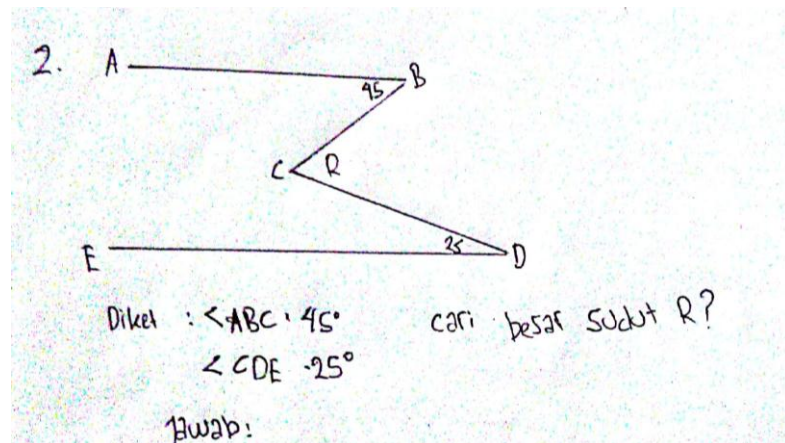 2. A B
45
C R
E 25 D
Diket : <ABC · 45° cari besar sudut R?
< CDE · 25°
Jawab: